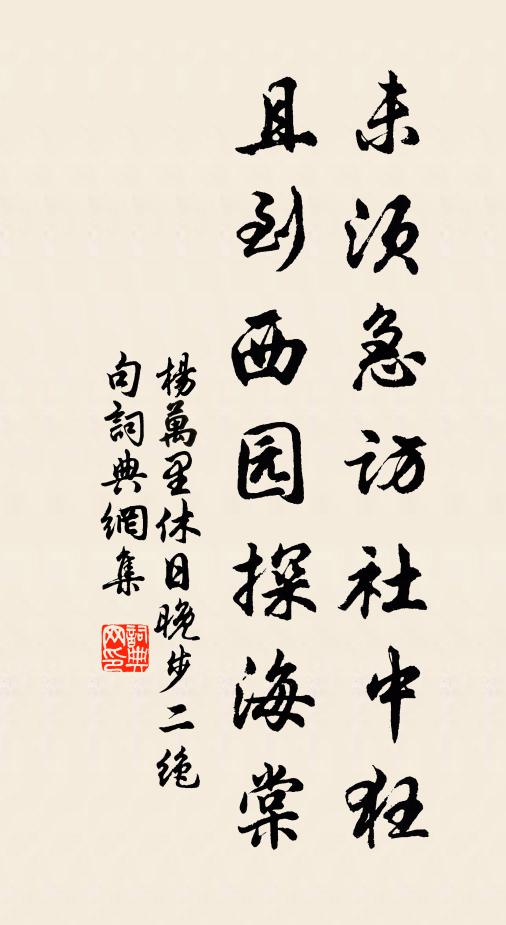 未须急访社中狂
且到西园探海棠
楊萬里休日晚步二絶
句詞典網集
詞典
网印